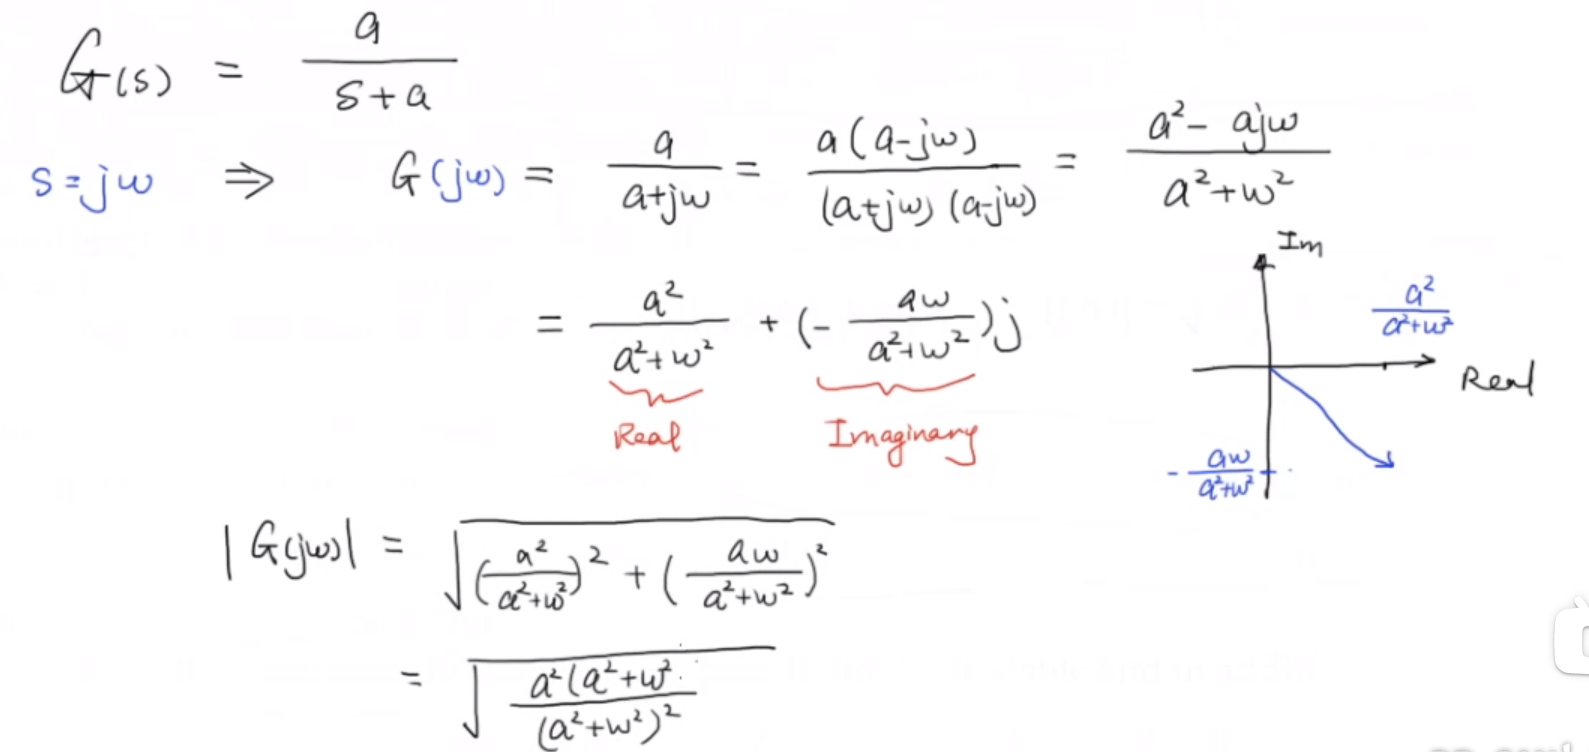 G(s) = a / (s+a)
s=jω ⇒ G(jω) = a / (a+jω) = a(a-jω) / ((a+jω)(a-jω)) = (a² - ajω) / (a²+ω²)
= a² / (a²+ω²) + (- aω / (a²+ω²))j
Real
Imaginary
Im
a² / (a²+ω²)
Real
- aω / (a²+ω²)
|G(jω)| = √((a² / (a²+ω²))² + (aω / (a²+ω²))²)
= √(a²(a²+ω² / (a²+ω²)²)